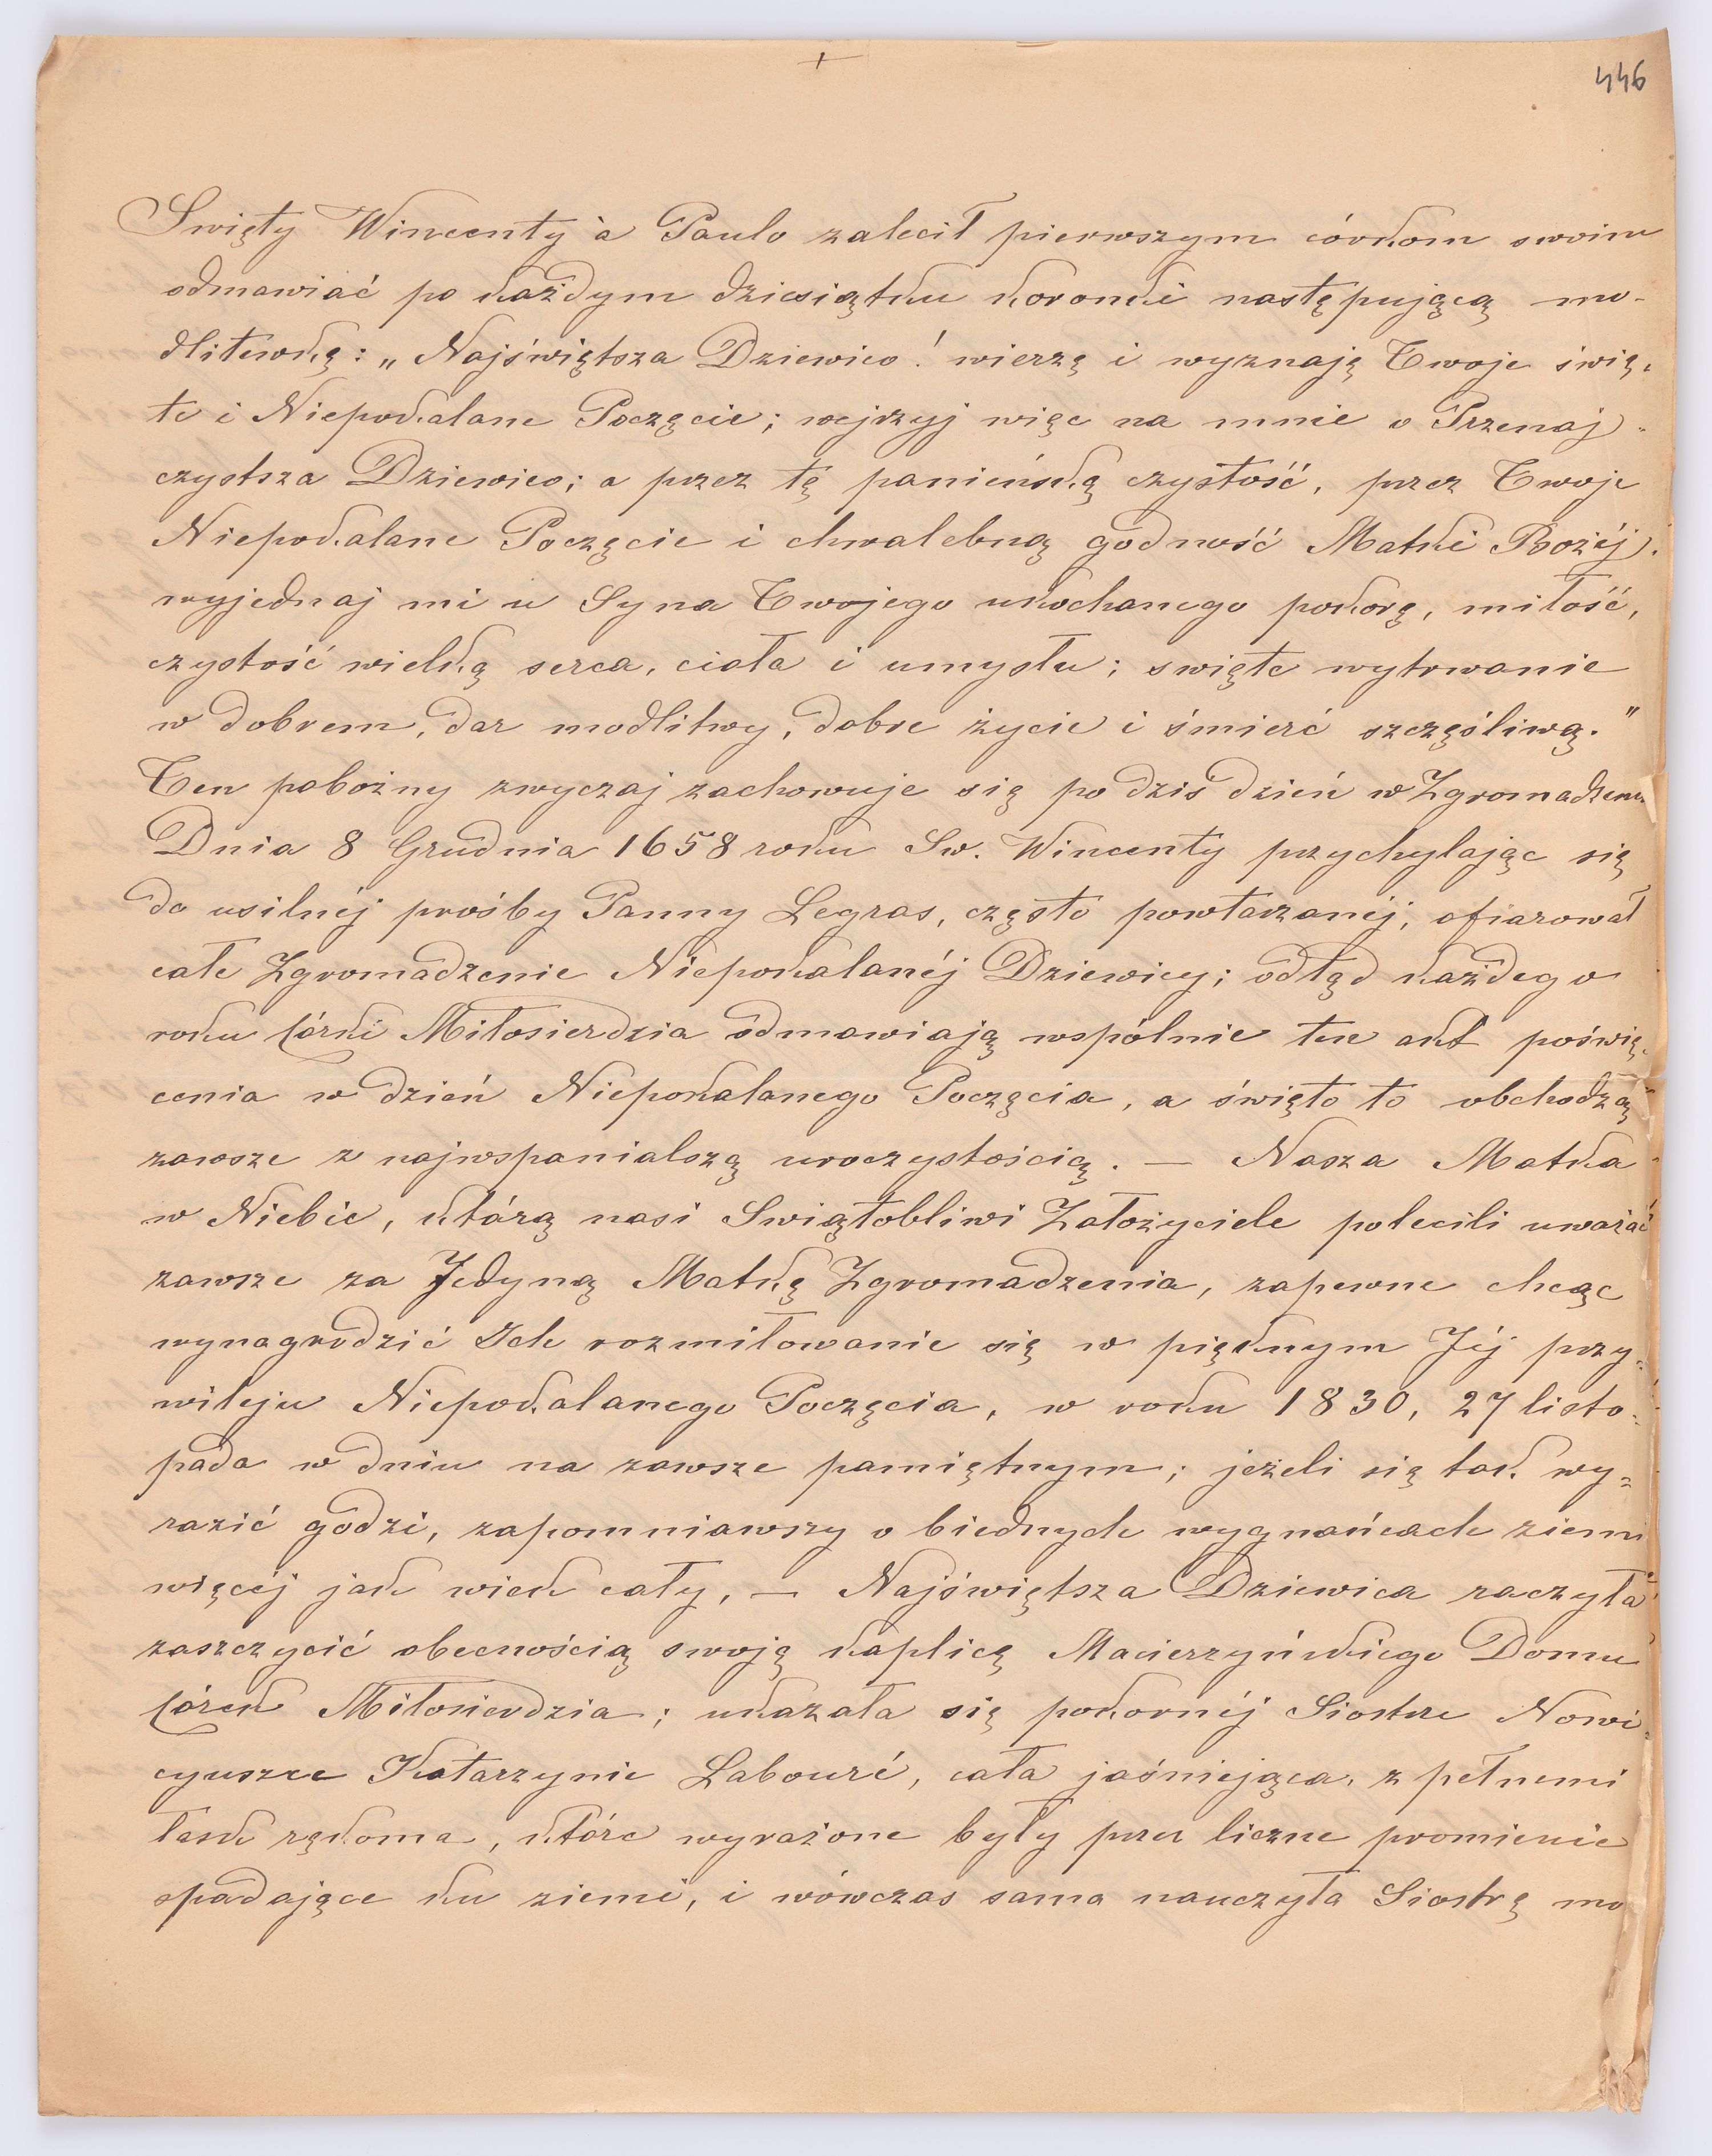 +
446
Swięty Wincenty à Paulo zalecił pierwszym córkom swoim
odmawiać po każdym dziesiątku koronki następującą mo-
dlitewkę: „Najświętsza Dziewico! wierzę i wyznaję Twoje świę-
te i Niepokalane Poczęcie; wejrzyj więc na mnie o Przenaj-
czystsza Dziewico; a przez tę panieńską czystość, przez Twoje
Niepokalane Poczęcie i chwalebną godność Matki Bożéj,
wyjednaj mi u Syna Twojego ukochanego pokorę, miłość,
czystość wielką serca, ciała i umysłu; swięte wytrwanie
w dobrem, dar modlitwy, dobre życie i śmierć szczęśliwą."
Ten pobożny zwyczaj zachowuje się po dziś dzień w Zgromadzeniu
Dnia 8 Grudnia 1658 roku Sw. Wincenty przychylając się
do usilnéj prośby Panny Legras, często powtarzanéj, ofiarował
całe Zgromadzenie Niepokalanéj Dziewicy; odtąd każdego
roku Córki Miłosierdzia odmawiają wspólnie ten akt poświę-
cenia w dzień Niepokalanego Poczęcia, a święto to obchodzą
zawsze z najwspanialszą uroczystością. — Nasza Matka
w Niebie, którą nasi Swiątobliwi Założyciele polecili uważać
zawsze za Jedyną Matkę Zgromadzenia, zapewne chcąc
wynagrodzić Ich rozmiłowanie się w pięknym Jéj przy-
wileju Niepokalanego Poczęcia, w roku 1830, 27 listo-
pada w dniu na zawsze pamiętnym; jeżeli się tak wy-
razić godzi, zapomniawszy o biednych wygnańcach ziemi
więcéj jak wiek cały, — Najświętsza Dziewica raczyła
zaszczycić obecnością swoją kaplicę Macierzyńskiego Domu
Córek Miłosierdzia; ukazała się pokornéj Siostrze Nowi-
cyuszce Katarzynie Labouré, cała jaśniejąca, z pełnemi
łask rękoma, które wyrażone były przez liczne promienie
spadające ku ziemi, i wówczas sama nauczyła Siostrę mo